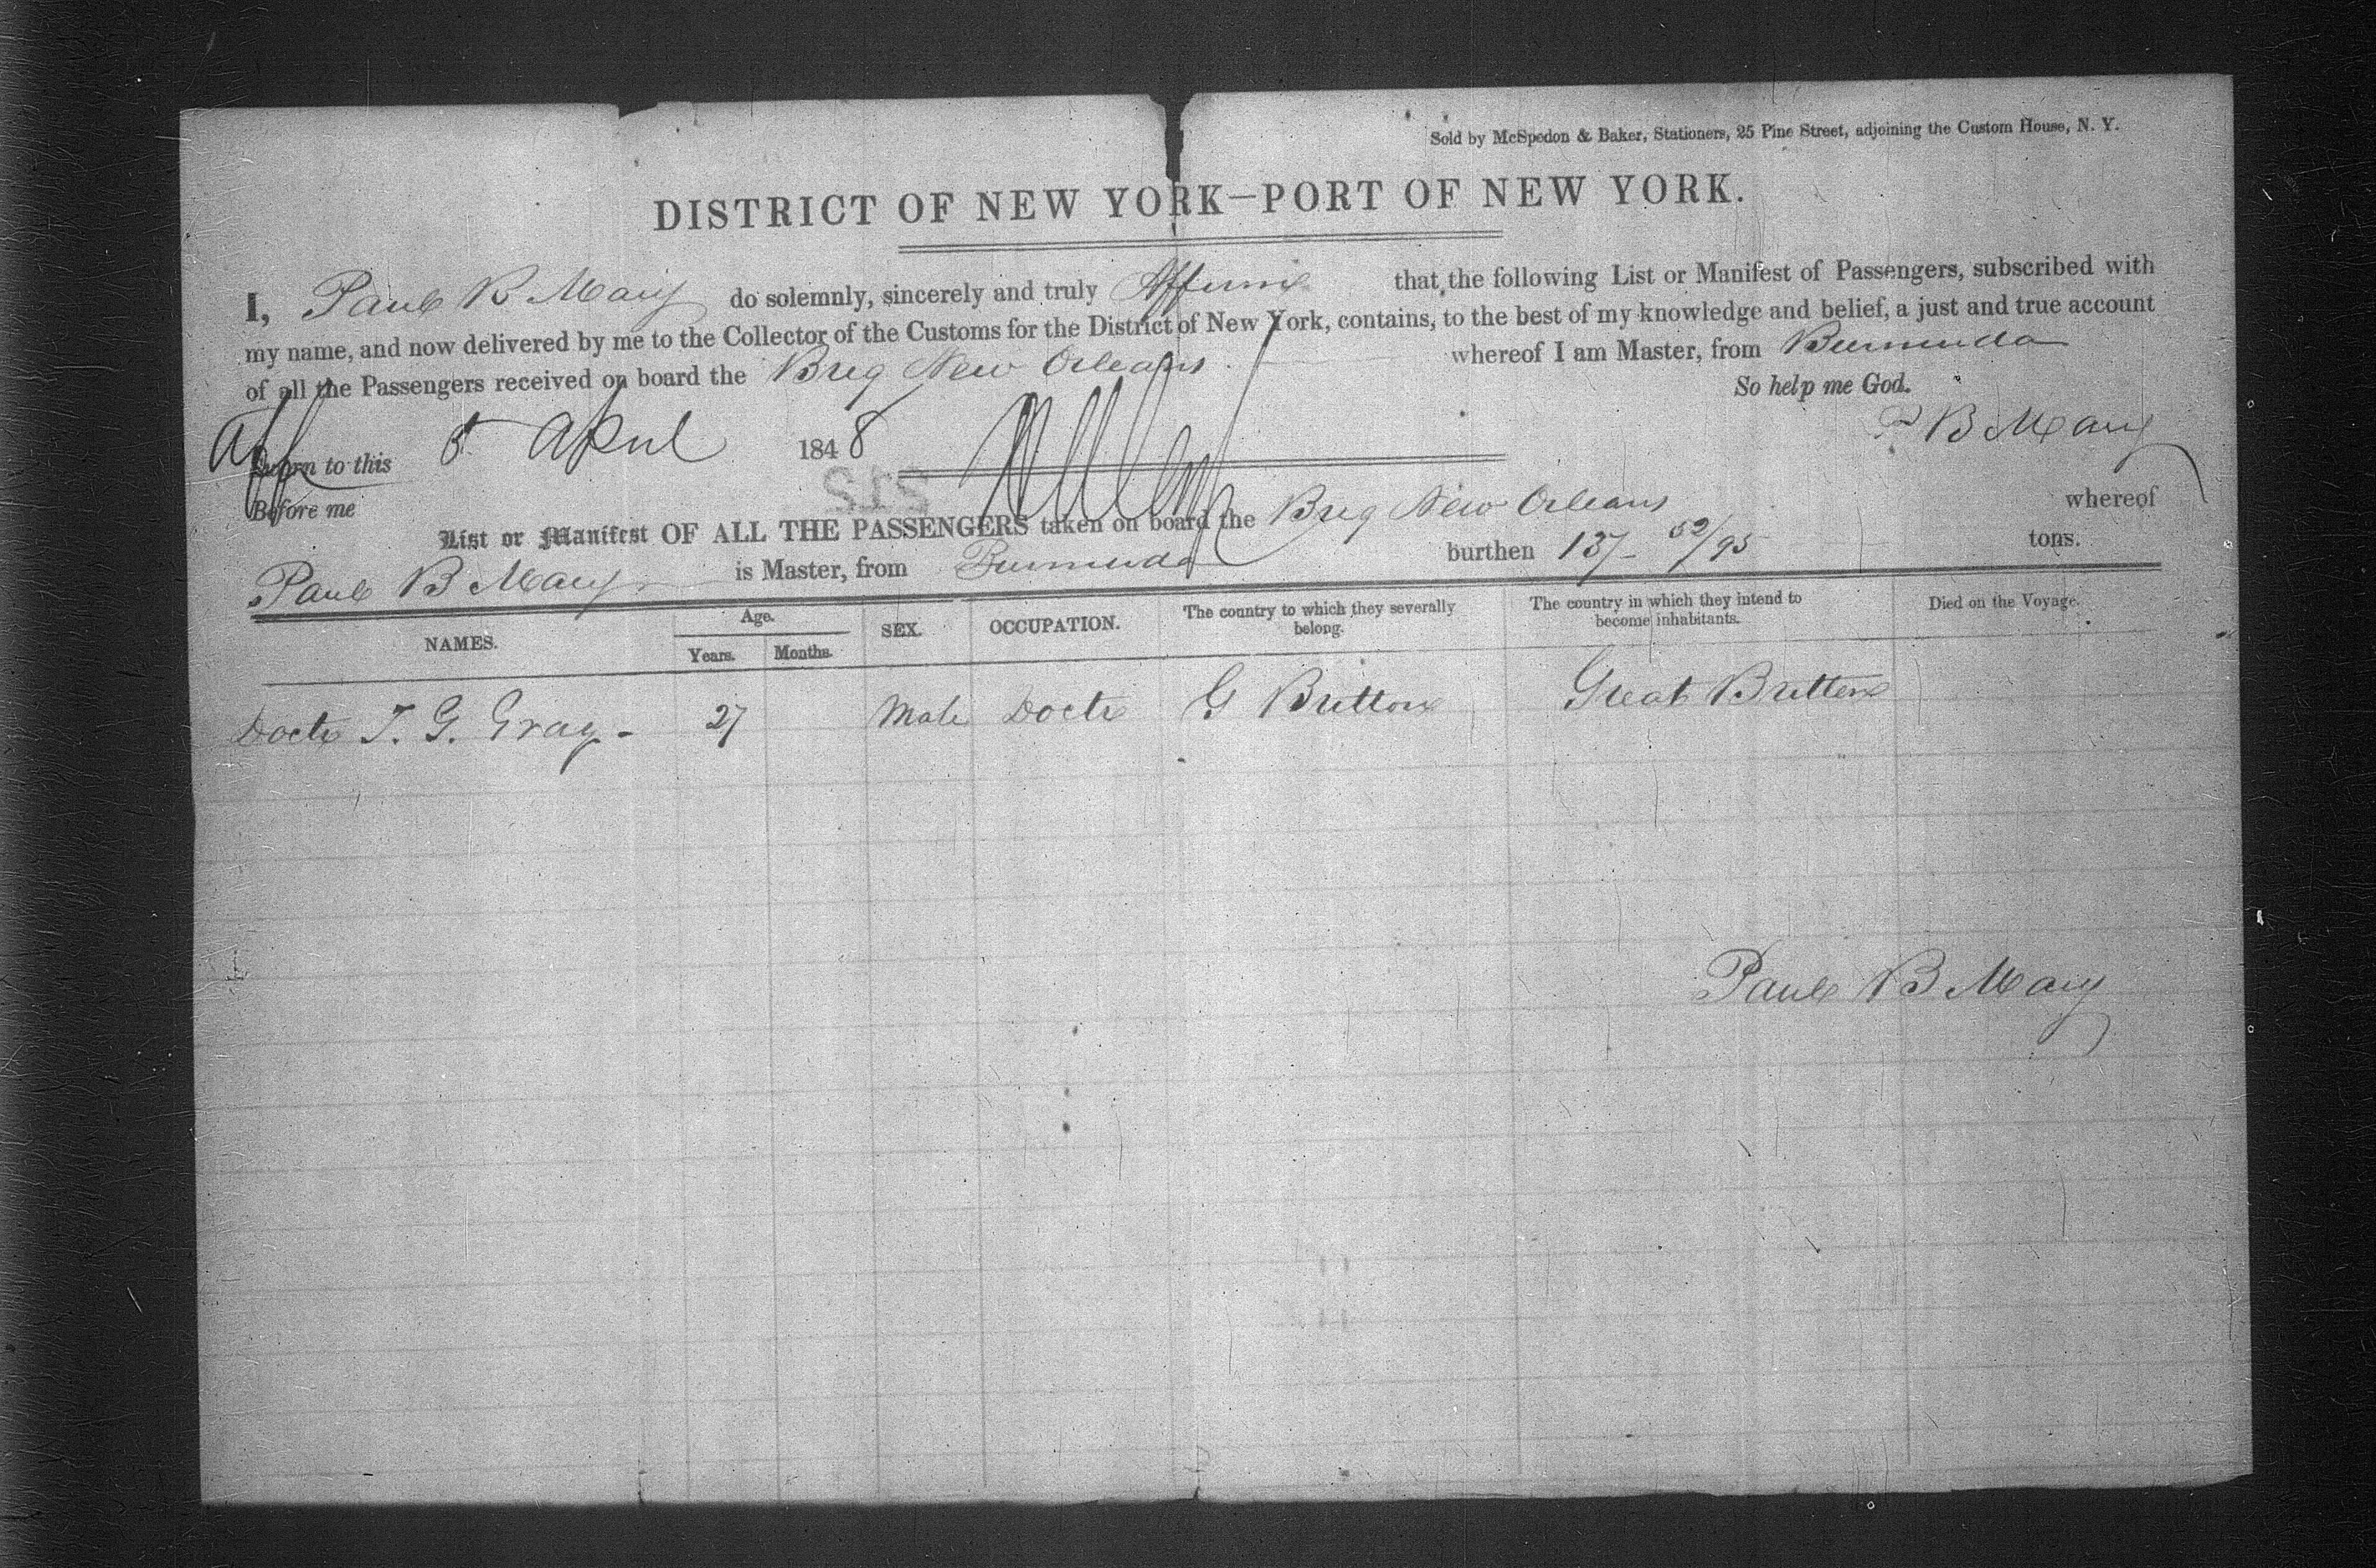 Sold by McSpedon & Baker, Stationers, 25 Pine Street, adjoining the Custom House, N. Y.
DISTRICT OF NEW YORK—PORT OF NEW YORK.
I, Paul B Mary do solemnly, sincerely and truly Affirm that the following List or Manifest of Passengers, subscribed with
my name, and now delivered by me to the Collector of the Customs for the District of New York, contains, to the best of my knowledge and belief, a just and true account
of all the Passengers received on board the Brig New Orleans whereof I am Master, from Bermuda
So help me God.
Aff Sworn to this 5 April 1848 P B Mary
Before me
515
List or Manifest OF ALL THE PASSENGERS taken on board the Brig New Orleans whereof
Paul B Mary is Master, from Bermuda burthen 137 52/95 tons.
NAMES. Age. Years. Months. SEX. OCCUPATION. The country to which they severally belong. The country in which they intend to become inhabitants. Died on the Voyage.
Doctr T. G. Gray - 27 Male Doctr G Britton Great Britten
Paul B Mary